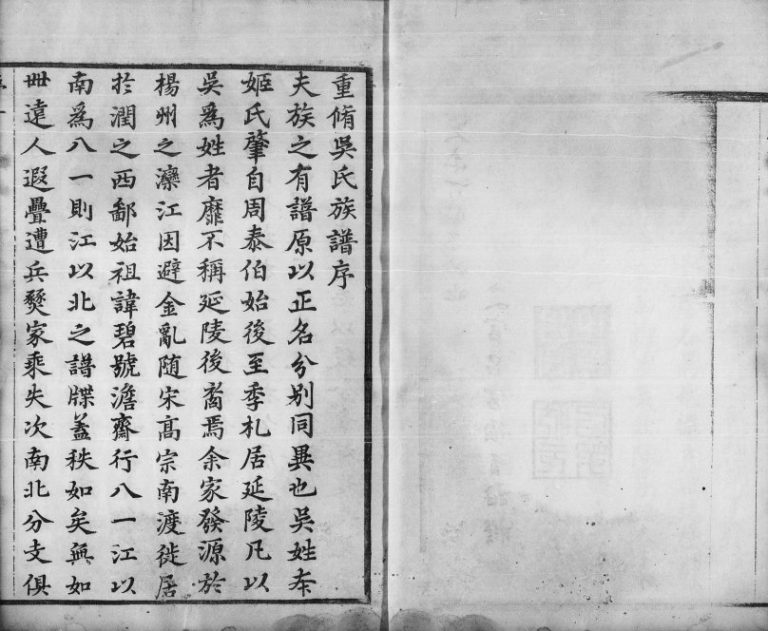 重脩吳氏族譜序
夫族之有譜原以正名分别同異也吳姓夲
姬氏肇自周泰伯始後至季札居延陵凡以
吳爲姓者靡不稱延陵後裔焉余家發源於
楊州之濼江因避金亂随宋髙宗南渡徙居
於潤之西鄙始祖諱碧號澹齋行八一江以
南爲八一則江以北之譜牒葢秩如矣無如
丗遠人遐疊遭兵燹家乘失次南北分支俱